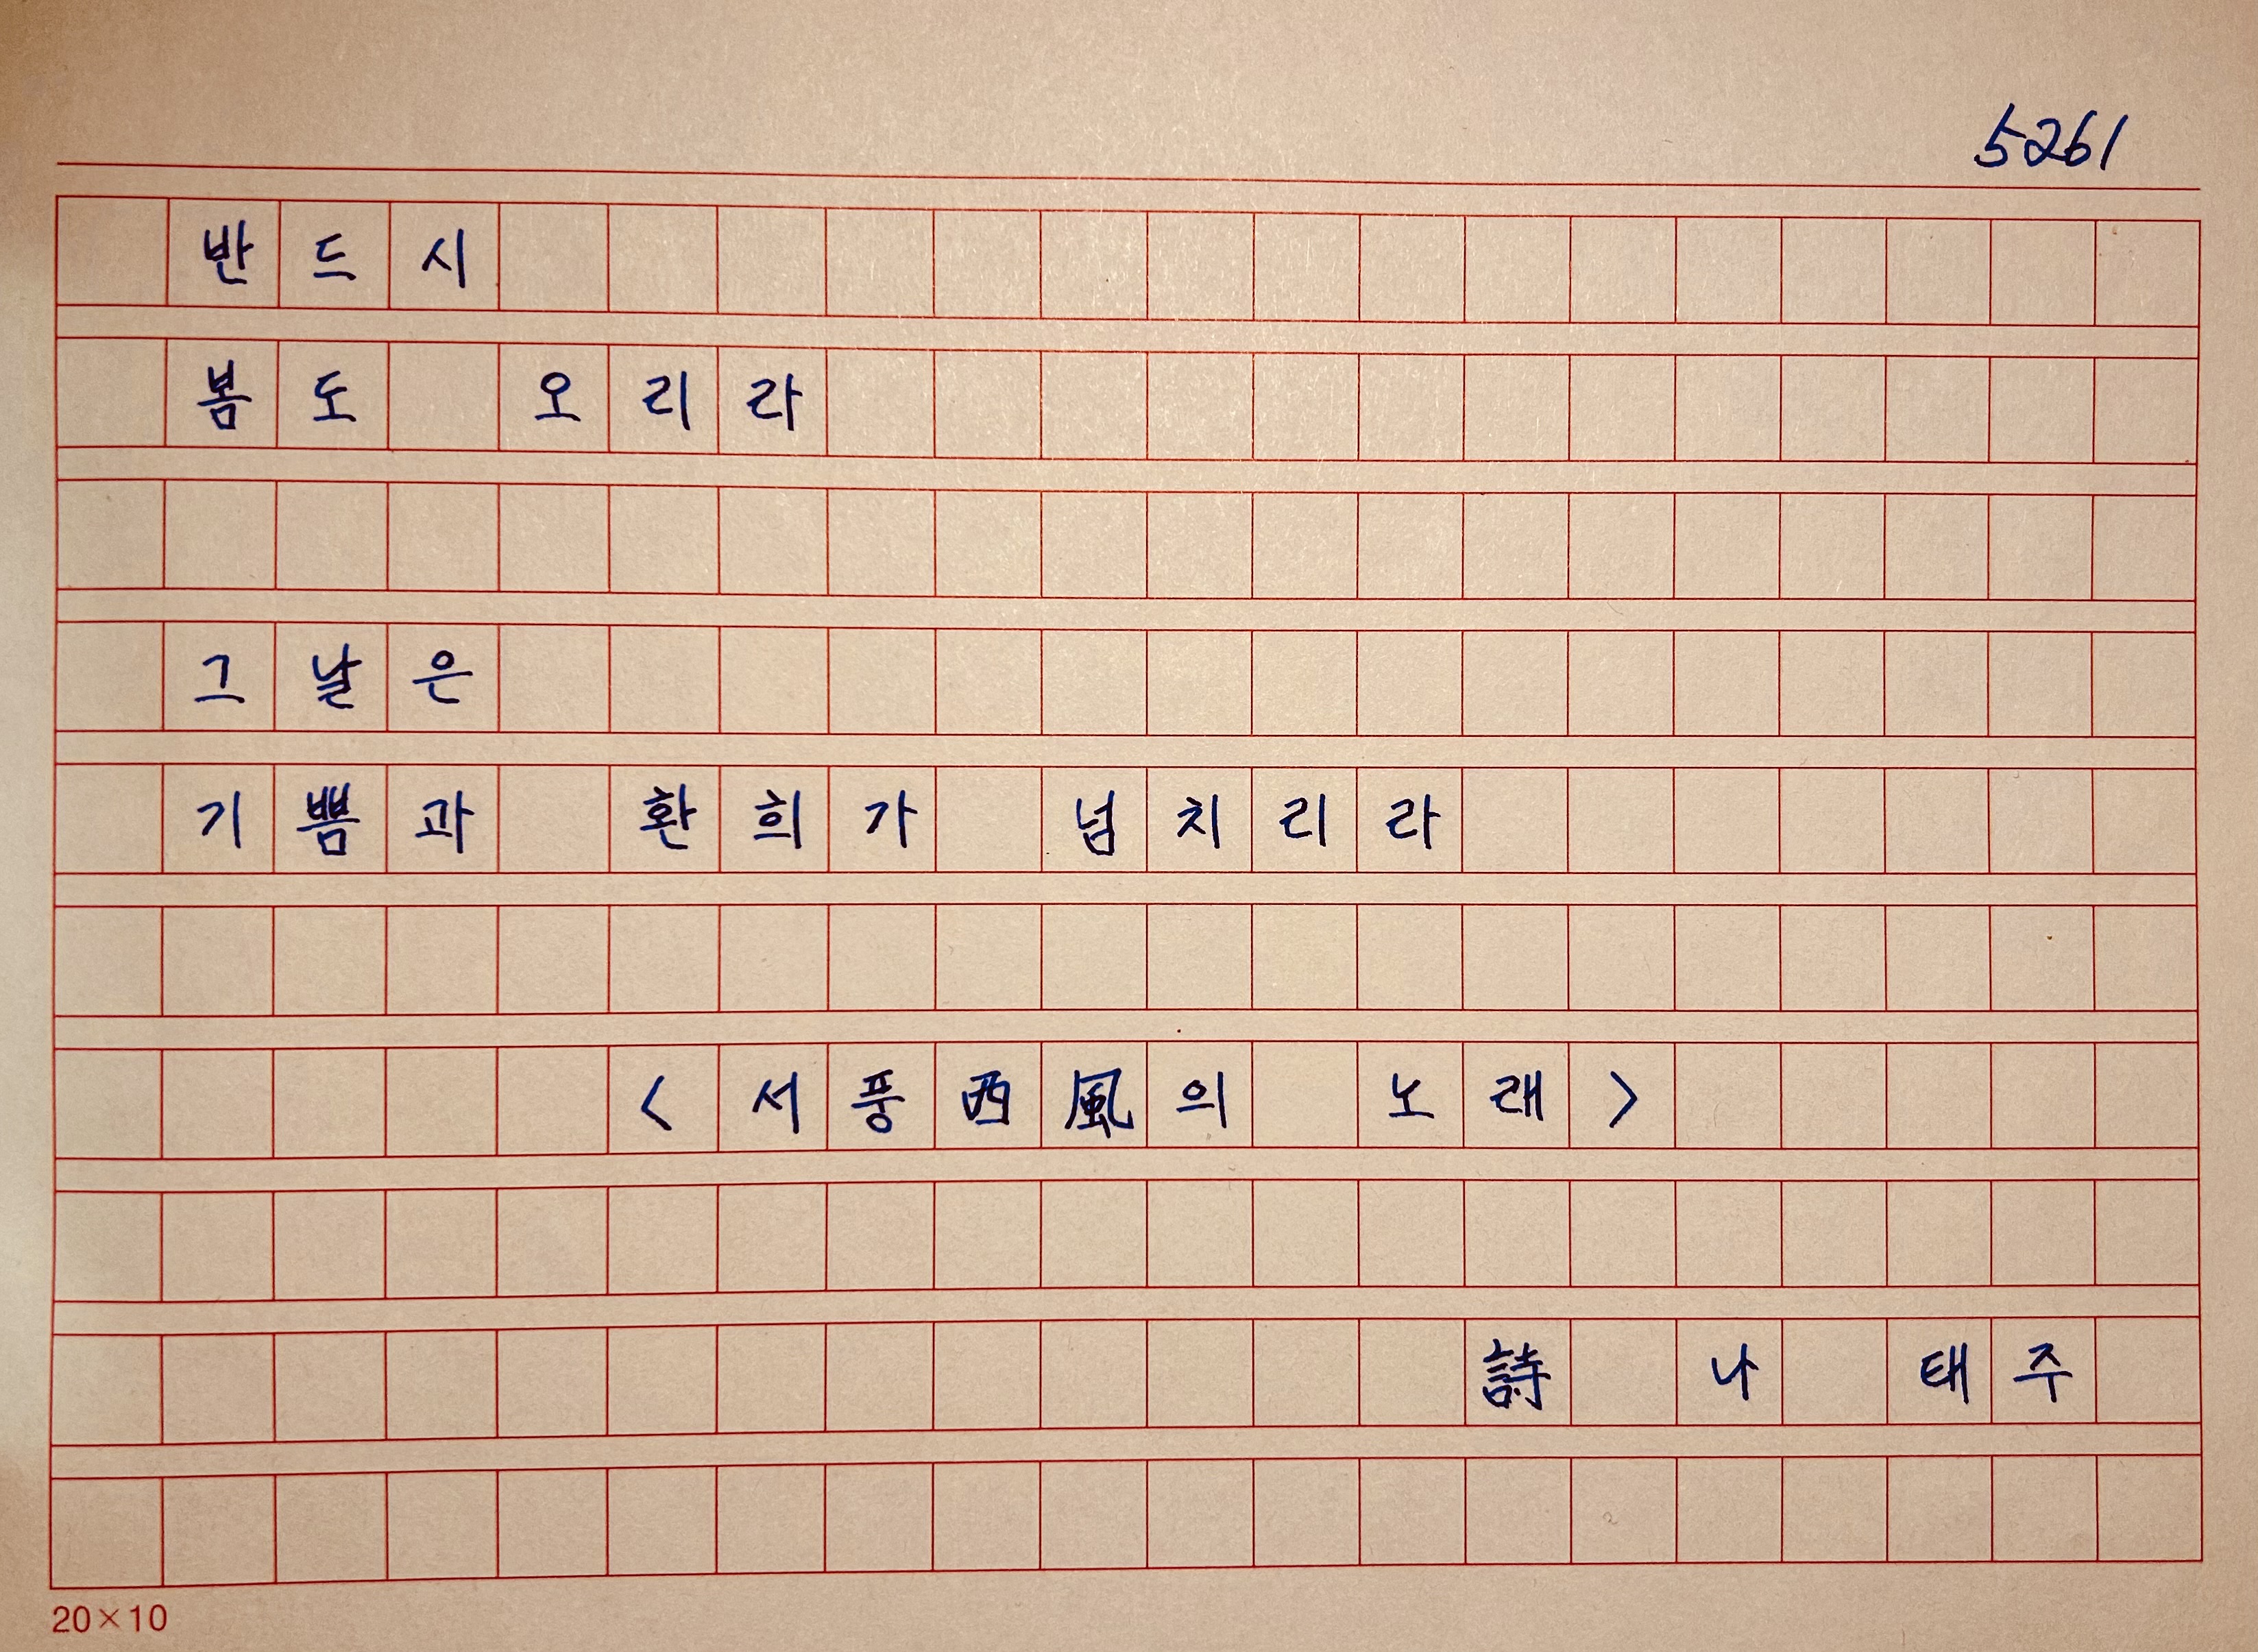 5261
반드시
봄도 오리라
그날은
기쁨과 환희가 넘치리라
<서풍西風의 노래>
詩 나 태주
20×10